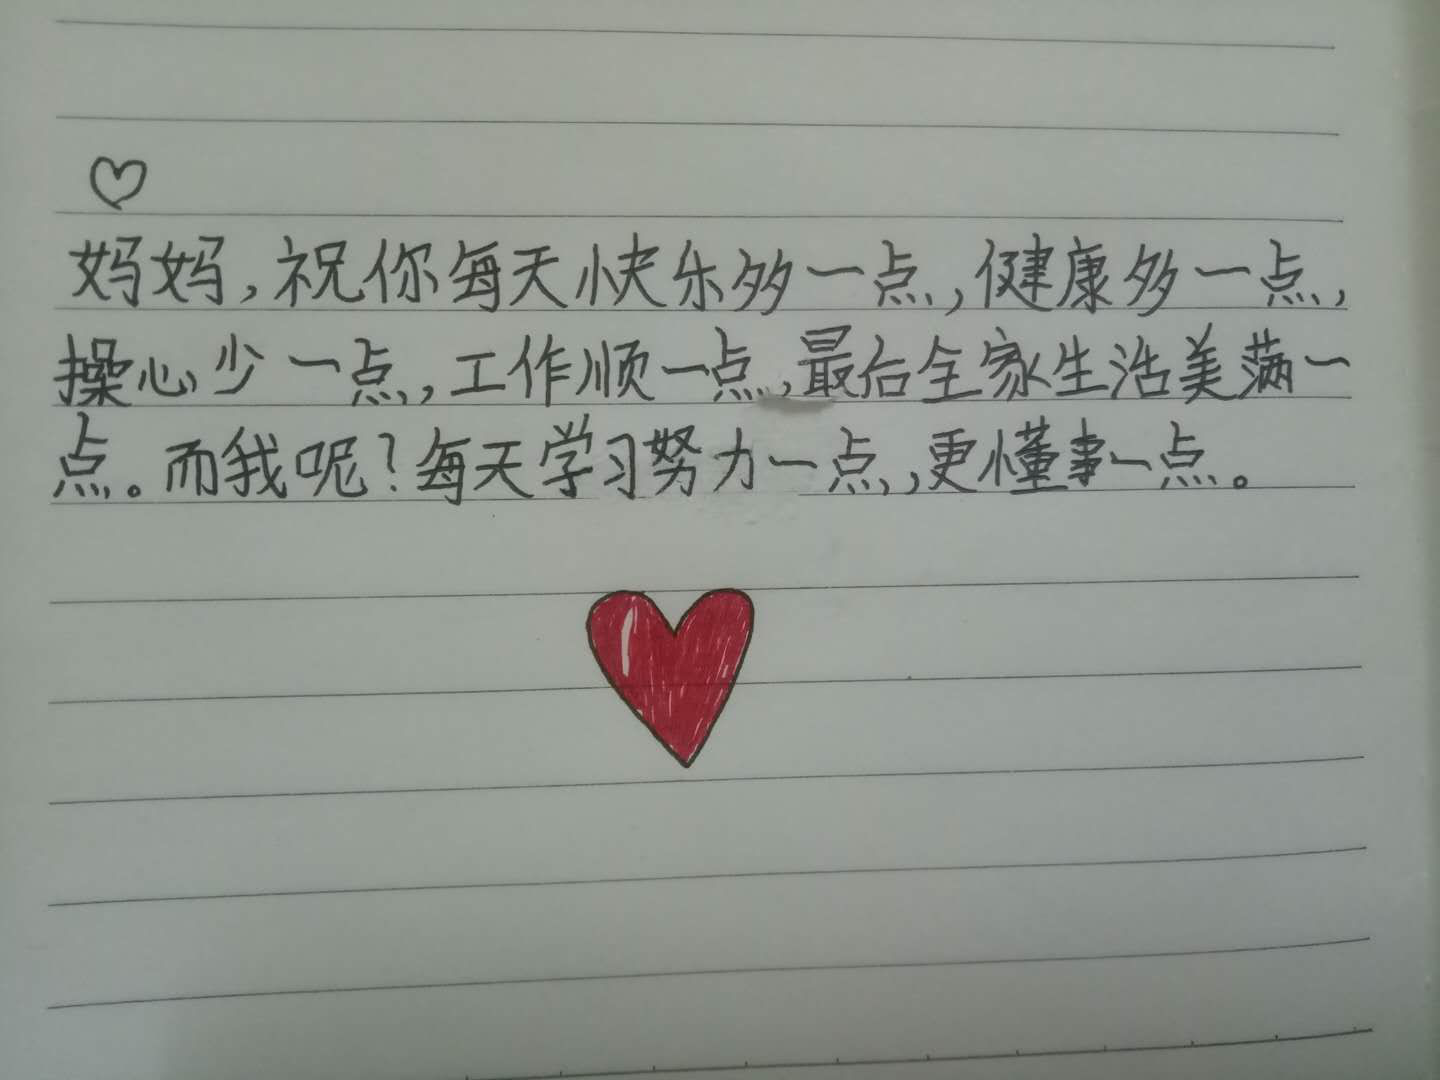 妈妈,祝你每天快乐多一点,健康多一点,
操心少一点,工作顺一点,最后全家生活美满一
点。而我呢?每天学习努力一点,更懂事一点。